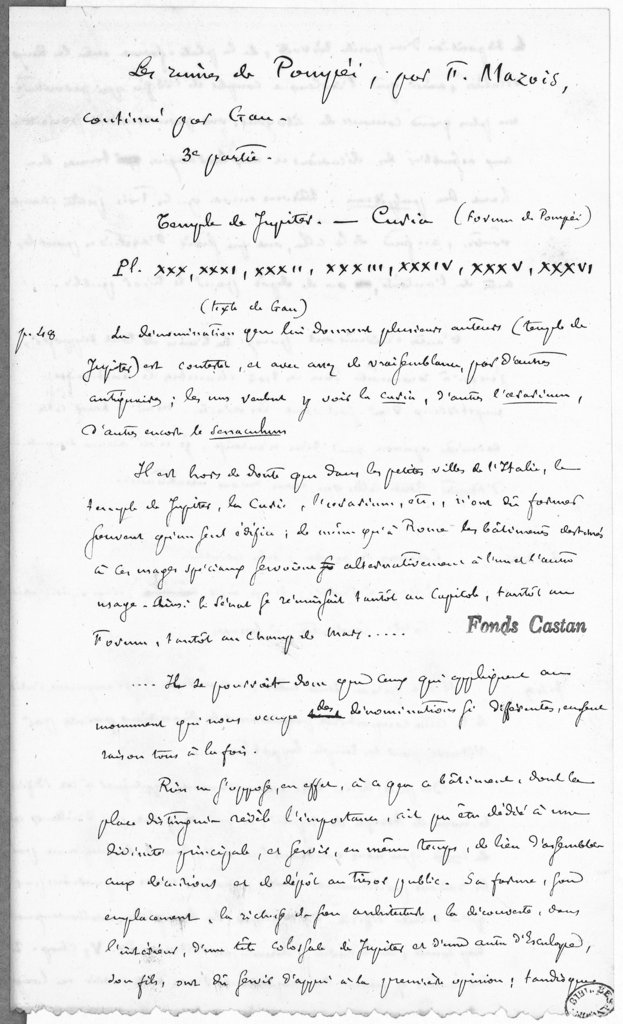 Les ruines de Pompéi, par F. Mazois,
continué par Gau.
3e partie.
Temple de Jupiter. — Curia (Forum de Pompéi)
Pl. XXX, XXXI, XXXII, XXXIII, XXXIV, XXXV, XXXVI
(texte de Gau)
p. 48
La dénomination que lui donnent plusieurs auteurs (temple de
Jupiter) est contestée, et avec assez de vraisemblance, par d'autres
antiquaires ; les uns veulent y voir la curia, d'autres l'œrarium,
d'autres encore le senaculum
Il est hors de doute que dans les petites villes de l'Italie, le
temple de Jupiter, la Curie, l'œrarium, etc., n'ont dû former
souvent qu'un seul édifice ; de même qu'à Rome les bâtiments destinés
à ces usages spéciaux servoient alternativement à l'un et l'autre
usage. Ainsi le Sénat se réunissait tantôt au Capitole, tantôt au
Forum, tantôt au Champ de Mars.....
Fonds Castan
.... Il se pourroit donc que ceux qui appliquent au
monument qui nous occupe des dénominations si différentes, eussent
raison tous à la fois.
Rien ne s'oppose, en effet, à ce que ce bâtiment, dont la
place distinguée révèle l'importance, ait pu être dédié à une
divinité principale, et servir, en même temps, de lieu d'assemblée
aux décurions et de dépôt au trésor public. Sa forme, son
emplacement, la richesse de son architecture, la découverte, dans
l'intérieur, d'une tête colossale de Jupiter et d'une autre d'Esculape,
son fils, ont dû servir d'appui à la première opinion ; tandis que